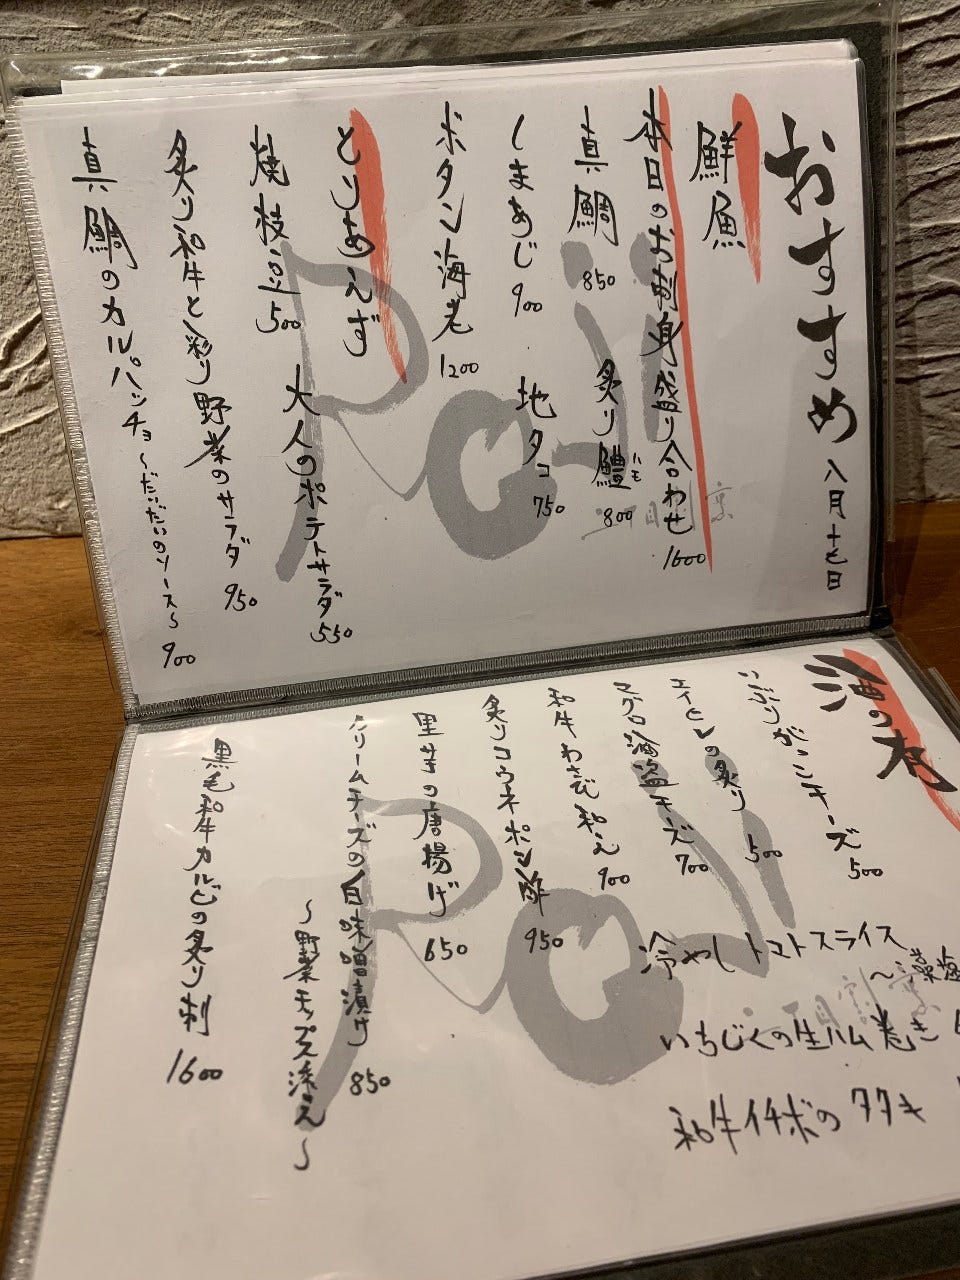 おすすめ 八月十七日
鮮魚
本日のお刺身盛り合わせ 1600
真鯛 850
炙り鱧 800
ハモ
しまあじ 900
地タコ 750
ボタン海老 1200
とりあえず
焼枝豆 500
大人のポテトサラダ 550
炙り和牛と彩り野菜のサラダ 950
真鯛のカルパッチョ〜だいだいのソース〜 900
Ro-ji
酒の友
いぶりがっこチーズ 500
エイヒレの炙り 500
マグロ酒盗チーズ 700
和牛わさび和え 900
炙りコウネポン酢 950
里芋の唐揚げ 650
クリームチーズの白味噌漬け
〜野菜チップス添え〜 850
黒毛和牛カルビの炙り刺 1600
冷やしトマトスライス
いちじくの生ハム巻き
和牛イチボのタタキ
Ro-ji